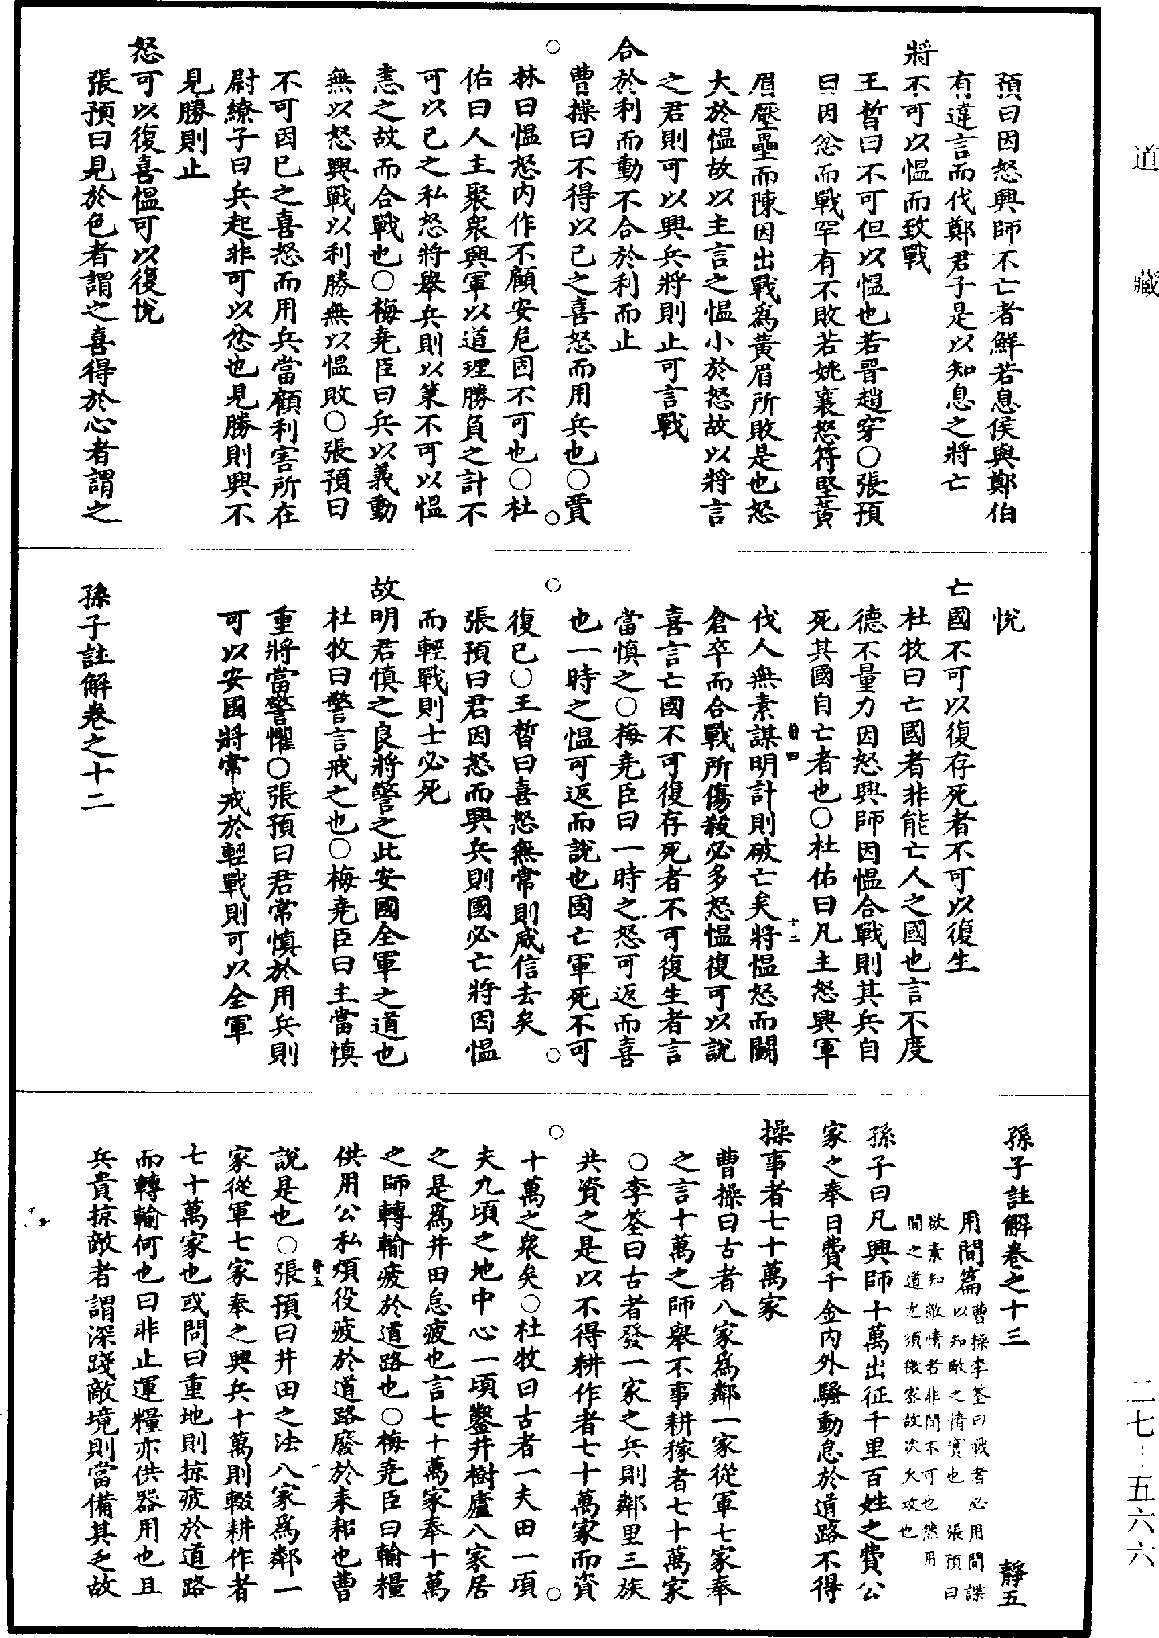 道藏
預曰因怒興師不亡者鮮若息侯與鄭伯
有違言而伐鄭君子是以知息之將亡
將不可以慍而致戰
王晳曰不可但以慍也若晋趙穿○張預
曰因忿而戰罕有不敗若姚襄怒苻堅黃
眉壓壘而陳因出戰爲黃眉所敗是也怒
大於慍故以主言之慍小於怒故以將言
之君則可以興兵將則止可言戰
合於利而動不合於利而止
曹操曰不得以己之喜怒而用兵也○賈
林曰慍怒內作不顧安危因不可也○杜
佑曰人主聚衆興軍以道理勝負之計不
可以己之私怒將舉兵則以策不可以慍
恚之故而合戰也○梅堯臣曰兵以義動
無以怒興戰以利勝無以慍敗○張預曰
不可因己之喜怒而用兵當顧利害所在
尉繚子曰兵起非可以忿也見勝則興不
見勝則止
怒可以復喜慍可以復悅
張預曰見於色者謂之喜得於心者謂之
悅
亡國不可以復存死者不可以復生
杜牧曰亡國者非能亡人之國也言不度
德不量力因怒興師因慍合戰則其兵自
死其國自亡者也○杜佑曰凡主怒興軍
伐人無素謀明計則破亡矣將慍怒而鬭
倉卒而合戰所傷殺必多怒慍復可以說
喜言亡國不可復存死者不可復生者言
當慎之○梅堯臣曰一時之怒可返而喜
也一時之慍可返而說也國亡軍死不可
復已○王晳曰喜怒無常則威信去矣
張預曰君因怒而興兵則國必亡將因慍
而輕戰則士必死
故明君慎之良將警之此安國全軍之道也
杜牧曰警言戒之也○梅堯臣曰主當慎
重將當警懼○張預曰君常慎於用兵則
可以安國將常戒於輕戰則可以全軍
孫子註解卷之十二
孫子註解卷之十三
靜五
用間篇
曹操李筌曰戰者必用間諜
以知敵之情實也 張預曰
欲素知敵情者非間不可也然用
間之道尤須微密故次火攻也
孫子曰凡興師十萬出征千里百姓之費公
家之奉日費千金內外騷動怠於道路不得
操事者七十萬家
曹操曰古者八家爲鄰一家從軍七家奉
之言十萬之師舉不事耕稼者七十萬家
○李筌曰古者發一家之兵則鄰里三族
共資之是以不得耕作者七十萬家而資
十萬之衆矣○杜牧曰古者一夫田一頃
夫九頃之地中心一頃鑿井樹廬八家居
之是爲井田怠疲也言七十萬家奉十萬
之師轉輸疲於道路也○梅堯臣曰輸糧
供用公私煩役疲於道路廢於耒耜也曹
說是也○張預曰井田之法八家爲鄰一
家從軍七家奉之興兵十萬則輟耕作者
七十萬家也或問曰重地則掠疲於道路
而轉輸何也曰非止運糧亦供器用也且
兵貴掠敵者謂深踐敵境則當備其乏故
二七‐五六六